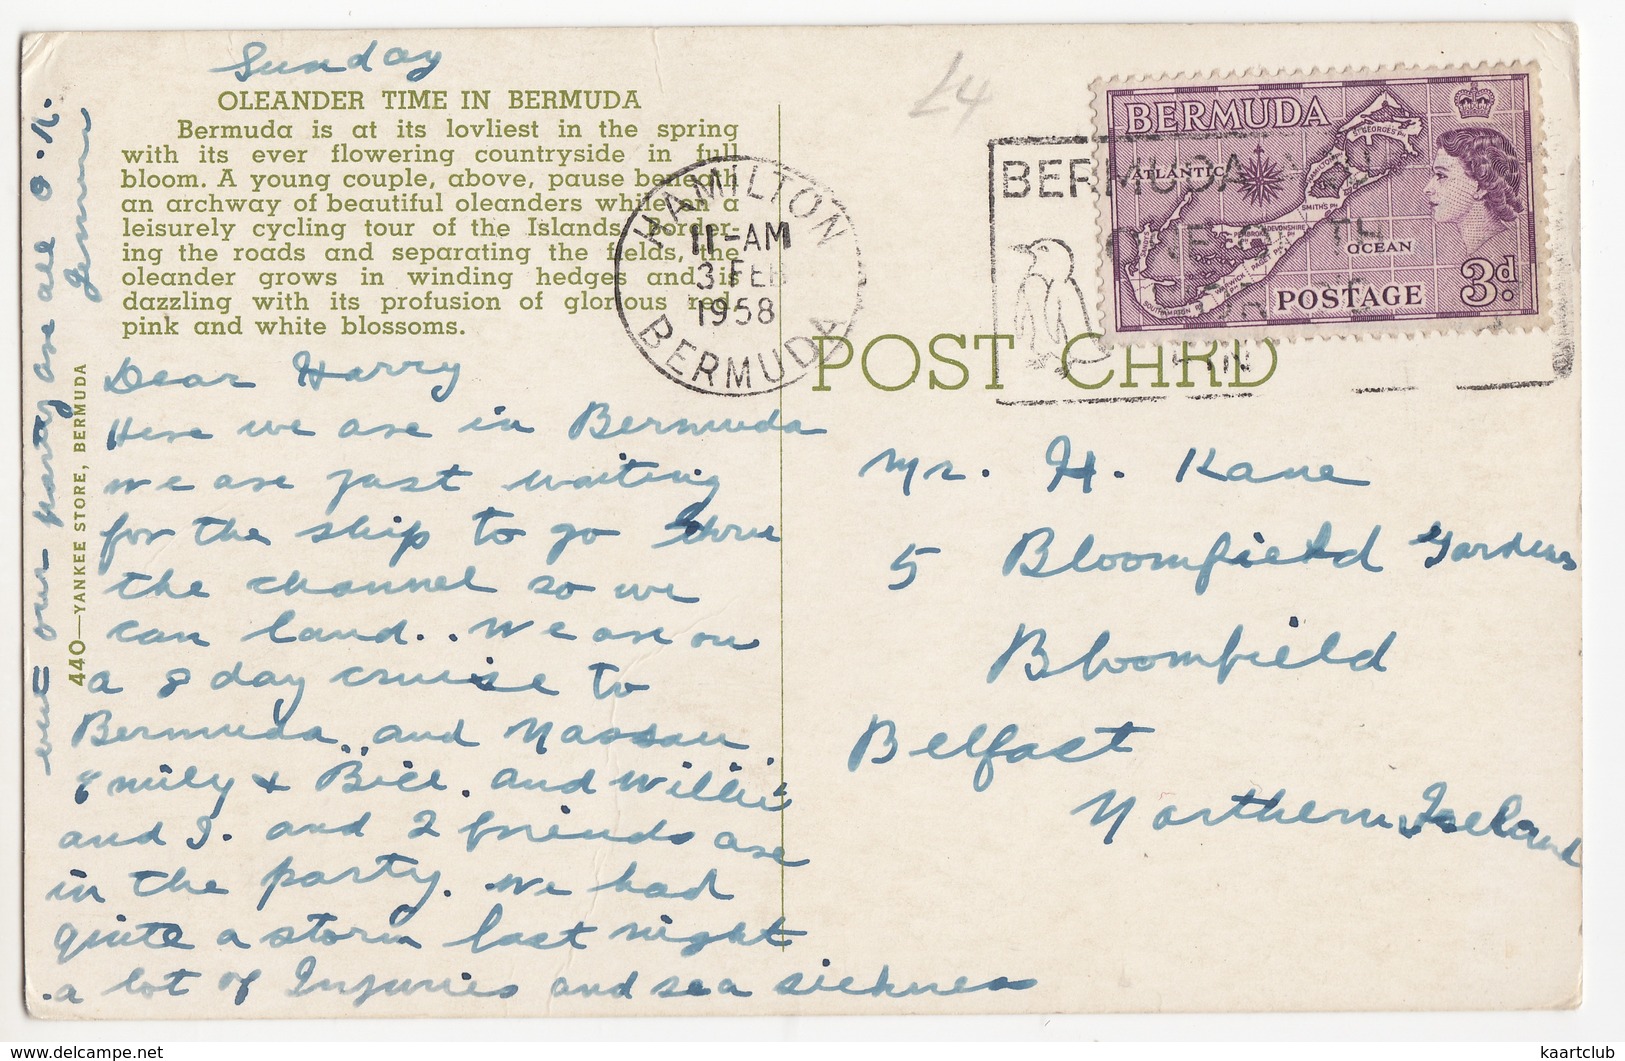 Sunday
OLEANDER TIME IN BERMUDA
Bermuda is at its lovliest in the spring
with its ever flowering countryside in full
bloom. A young couple, above, pause beneath
an archway of beautiful oleanders while on a
leisurely cycling tour of the Islands. Border-
ing the roads and separating the fields, the
oleander grows in winding hedges and is
dazzling with its profusion of glorious red,
pink and white blossoms.
Dear Harry
Here we are in Bermuda
we are just waiting
for the ship to go thru
the channel so we
can land.. We are on
a 8 day cruise to
Bermuda.. and Nassau
Emily & Bill. and Willie
and I. and 2 friends are
in the party. We had
quite a storm last night
.a lot of Injuries and sea sickness
but our party are all O.K.
440—YANKEE STORE, BERMUDA
£4
HAMILTON
11-AM
3 FEB
1958
BERMUDA
BERMUDA
BERMUDA
ATLANTIC
OCEAN
ST GEORGE'S PH
SMITH'S PH
DEVONSHIRE
SOUTHAMPTON
POSTAGE 3d.
POST CARD
Mr. H. Kane
5 Bloomfield Gardens
Bloomfield
Belfast
Northern Ireland
kaartclub